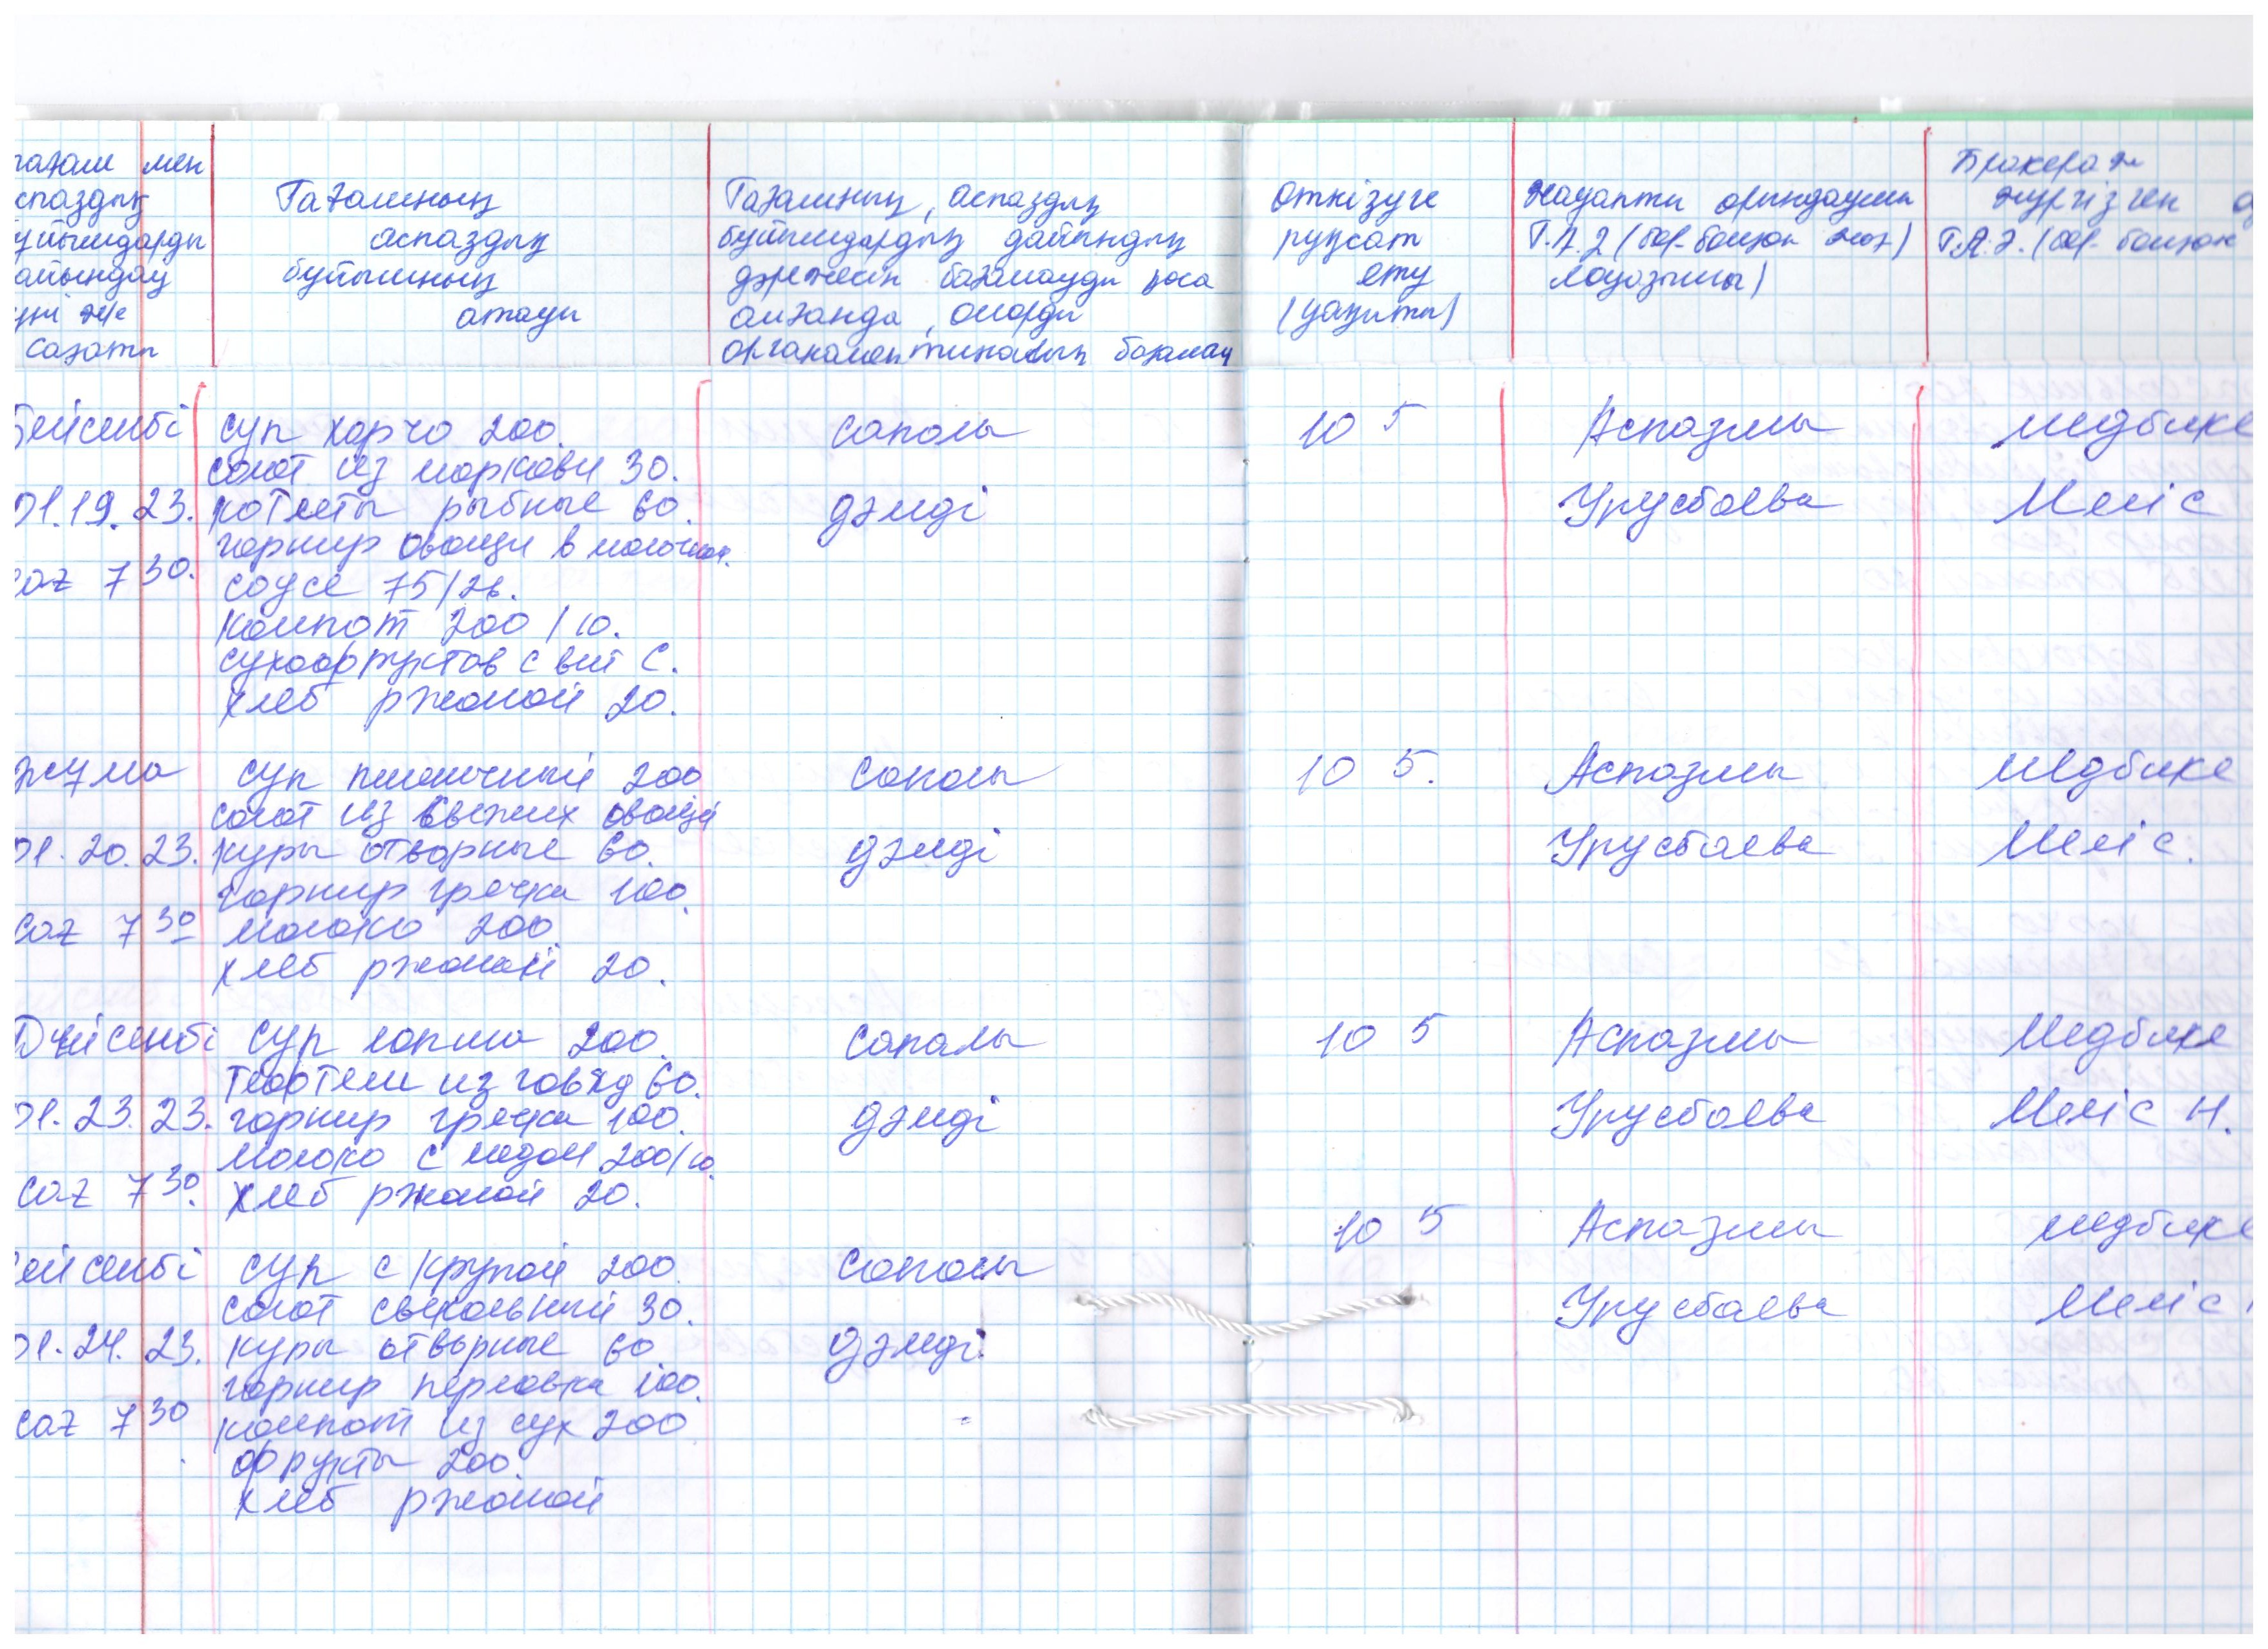 тағам мен
спаздық
ұйымдарды
айындау
үні және
сағаты
Тағамның
аспаздық
бұйымның
атауы
Тағамның, аспаздық
бұйымдардың дайындық
дәрежесін бағалауды қоса
алғанда, оларды
органолептикалық бағалау
Өткізуге
рұқсат
ету
(уақыты)
Жауапты орындаушы
Т.А.Ә (бар болған жағ)
лауазымы)
Бракераж
жүргізген
Т.А.Ә. (бар болған
бейсенбі
01.19.23.
сағ 7 30.
суп харчо 200.
салат из моркови 30.
котлеты рыбные 60.
гарнир овощи в молочном.
соусе 75/26.
компот 200/10.
сухофруктов с вит С.
хлеб ржаной 20.
сапалы
дәмді
10 5
Аспазшы
Урусбаева
медбике
Меліс
жұма
01.20.23.
сағ 7 30
суп пшеничный 200
салат из свежих овощей
куры отварные 60.
гарнир гречка 100.
молоко 200
хлеб ржаной 20.
сапалы
дәмді
10 5.
Аспазшы
Урусбаева
медбике
Меліс.
Дүйсенбі
01.23.23.
сағ 7 30.
суп лапша 200.
тефтели из говяд 60.
гарнир гречка 100.
молоко с медом 200/10.
хлеб ржаной 20.
сапалы
дәмді
10 5
Аспазшы
Урусбаева
Медбике
Меліс Н.
ейсенбі
01.24.23.
сағ 7 30
суп с крупой 200.
салат свекольный 30.
куры отварные 60
гарнир перловка 100.
компот из сух 200
фрукты 200.
хлеб ржаной
сапалы
дәмді.
10 5
Аспазшы
Урусбаева
медбике
Меліс